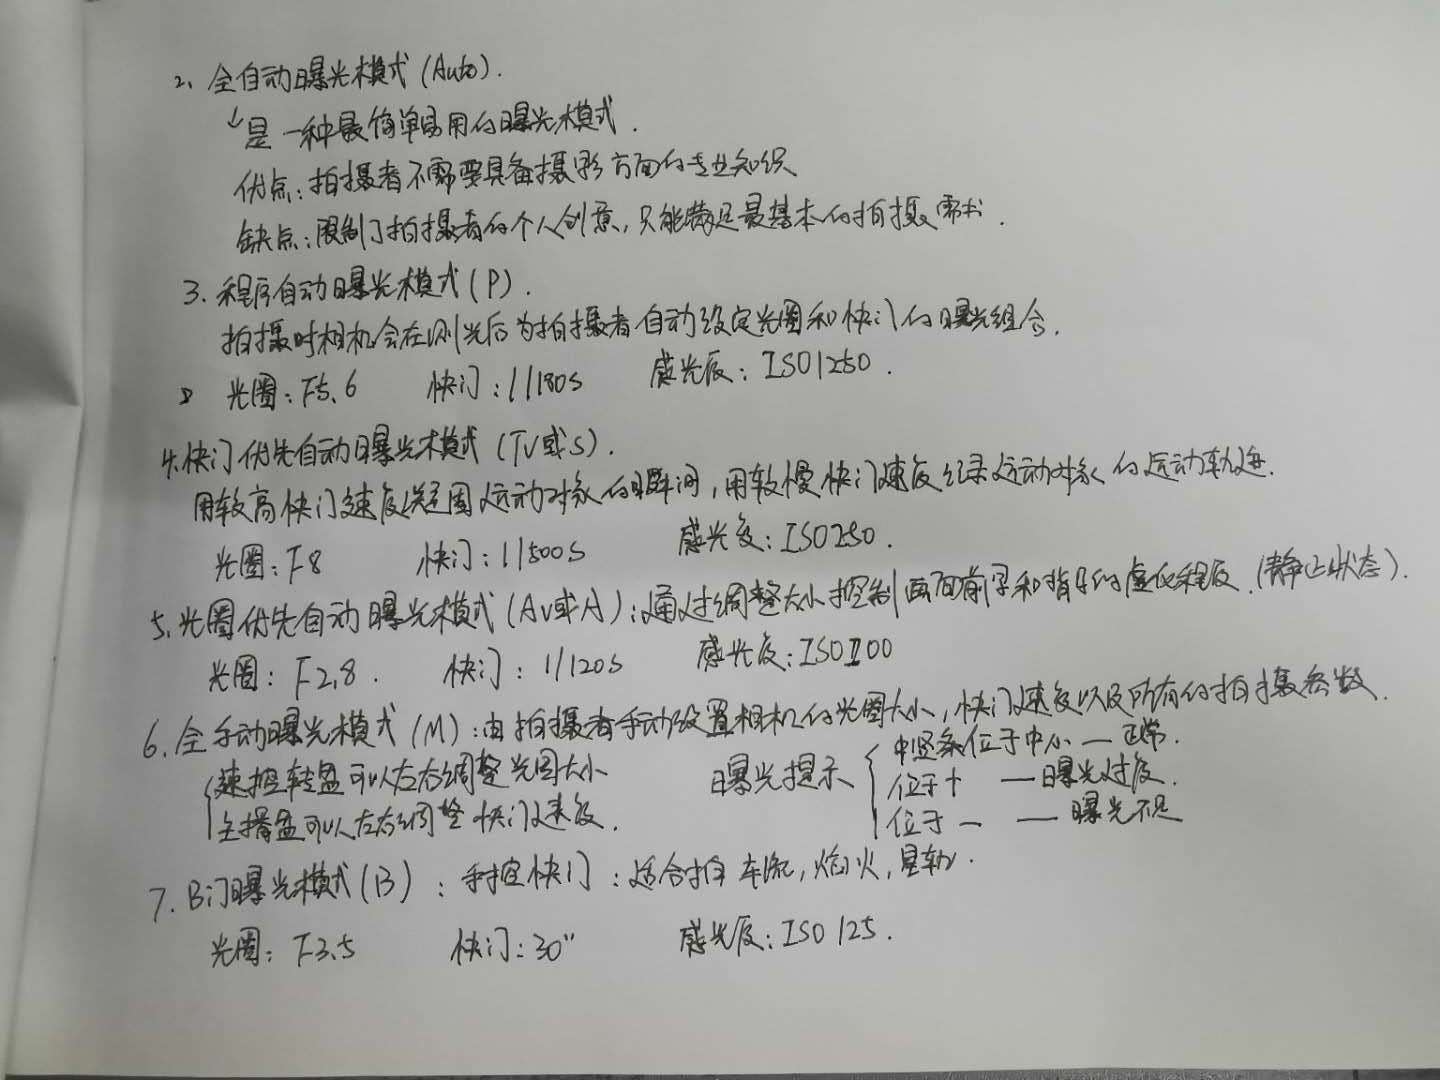 2、全自动曝光模式(Auto).
↓是一种最简单易用的曝光模式.
优点:拍摄者不需要具备摄影方面的专业知识
缺点:限制了拍摄者的个人创意,只能满足最基本的拍摄需求.
3.程序自动曝光模式(P).
拍摄时相机会在测光后为拍摄者自动设定光圈和快门的曝光组合.
光圈:F5.6 快门:1/180s 感光度:ISO1250.
4.快门优先自动曝光模式(Tv或S).
用较高快门速度凝固运动对象的瞬间,用较慢快门速度纪录运动对象的运动轨迹.
光圈:F8 快门:1/500s 感光度:ISO250.
5.光圈优先自动曝光模式(Av或A):通过调整大小控制画面前景和背景的虚化程度.(静止状态).
光圈:F2.8. 快门:1/120s 感光度:ISO100
6.全手动曝光模式(M):由拍摄者手动设置相机的光圈大小,快门速度以及所有的拍摄参数.
速控转盘可以左右调整光圈大小
主拨盘可以左右调整快门速度.
曝光提示
中竖条位于中心—正常.
位于+ —曝光过度.
位于— —曝光不足
7.B门曝光模式(B):手控快门:适合拍车流,焰火,星轨.
光圈:F3.5 快门:30" 感光度:ISO 125.